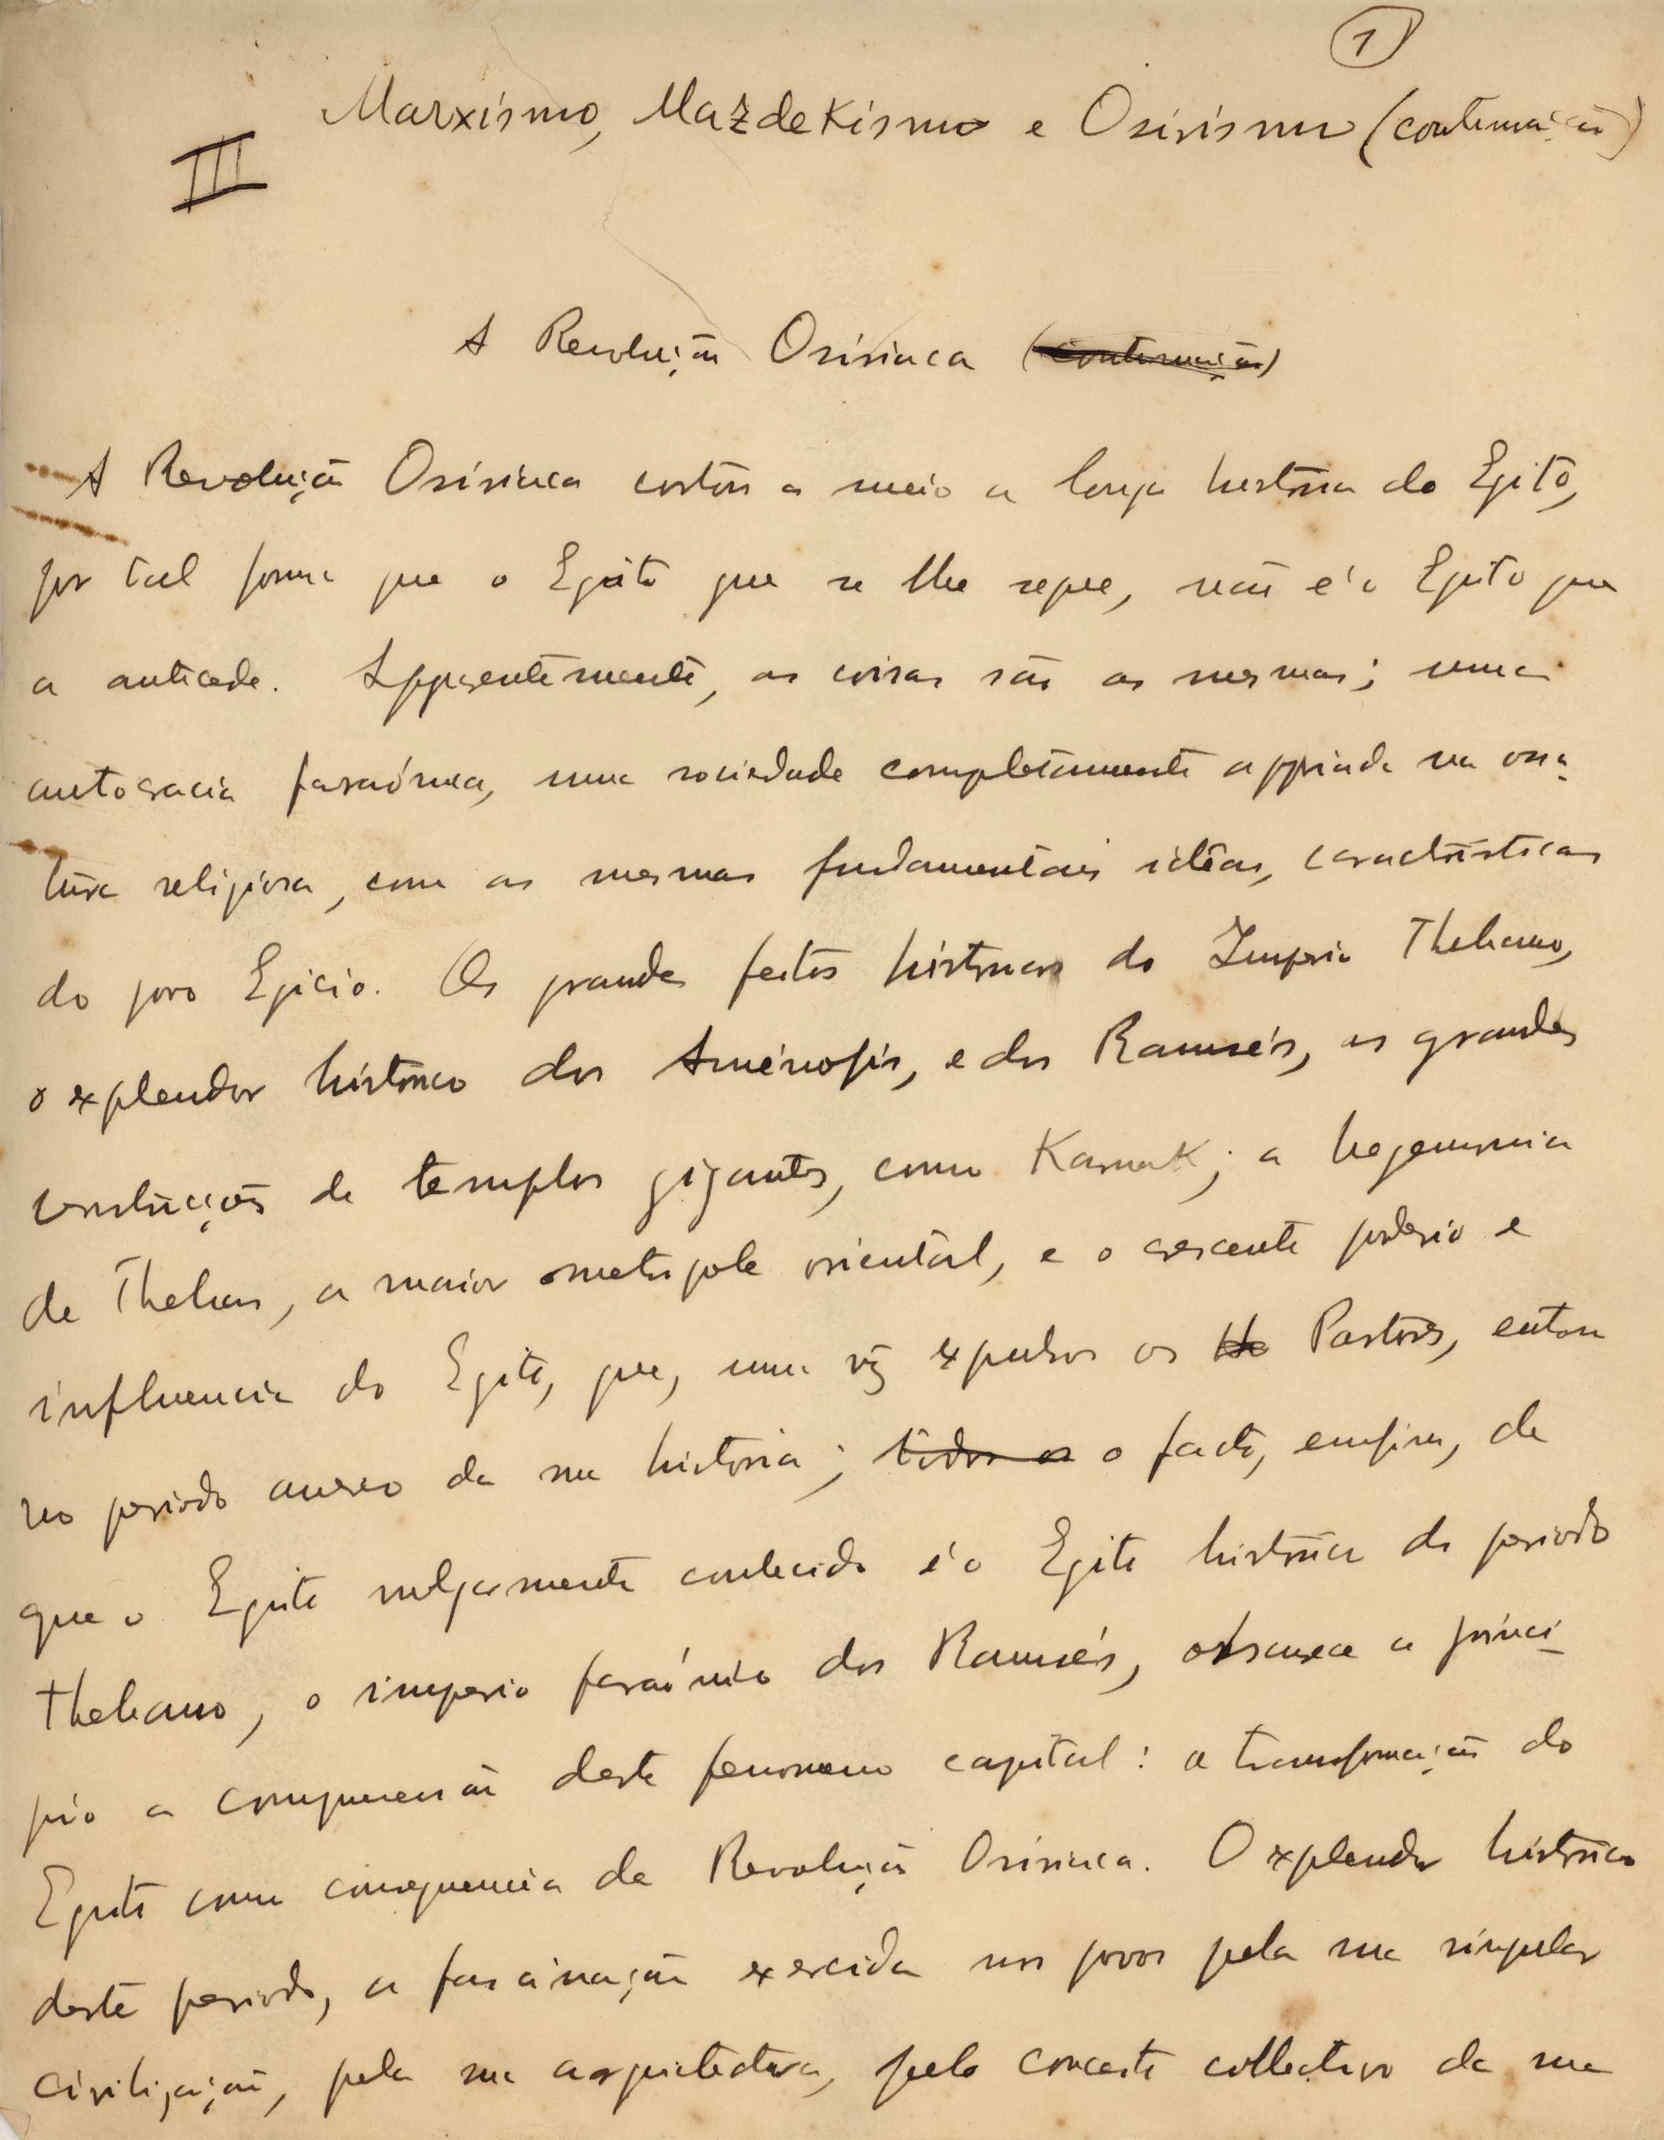 1
Marxismo, Mazdekismo e Osirismo (continuação)
III
A Revolução Osiriaca (continuação)
A Revolução Osiriaca cortou a meio a longa historia do Egito,
por tal forma que o Egito que se lhe segue, não é o Egito que
a antecede. Apparentemente, as coisas são as mesmas; uma
autocracia faraónica, uma sociedade completamente appoiada na
tura religiosa, com as mesmas fundamentais idêas, caracteristicas
do povo Egicio. Os grandes feitos historicos do Imperio Thebano,
o explendor historico dos Aménofis, e dos Ramsés, as grandes
construcções de templos gigantes, como Karnak; a hegemonia
de Thebas, a maior metropole oriental, e o crescente poderio e
influencia do Egito, que, uma vez expulsos os He Pastores, entou
no periodo aureo da sua historia; todos os o facto, emfim, de
que o Egito vulgarmente conhecido é o Egito historico do periodo
Thebano, o imperio faraónico dos Ramsés, obscurece a princi-
pio a comprensão deste fenomeno capital: a transformação do
Egito como consequencia da Revolução Osiriaca. O explendor historico
deste periodo, a fascinação exercida nos povos pela sua singular
civilização, pela sua arquitectura, pelo conceito collectivo da sua